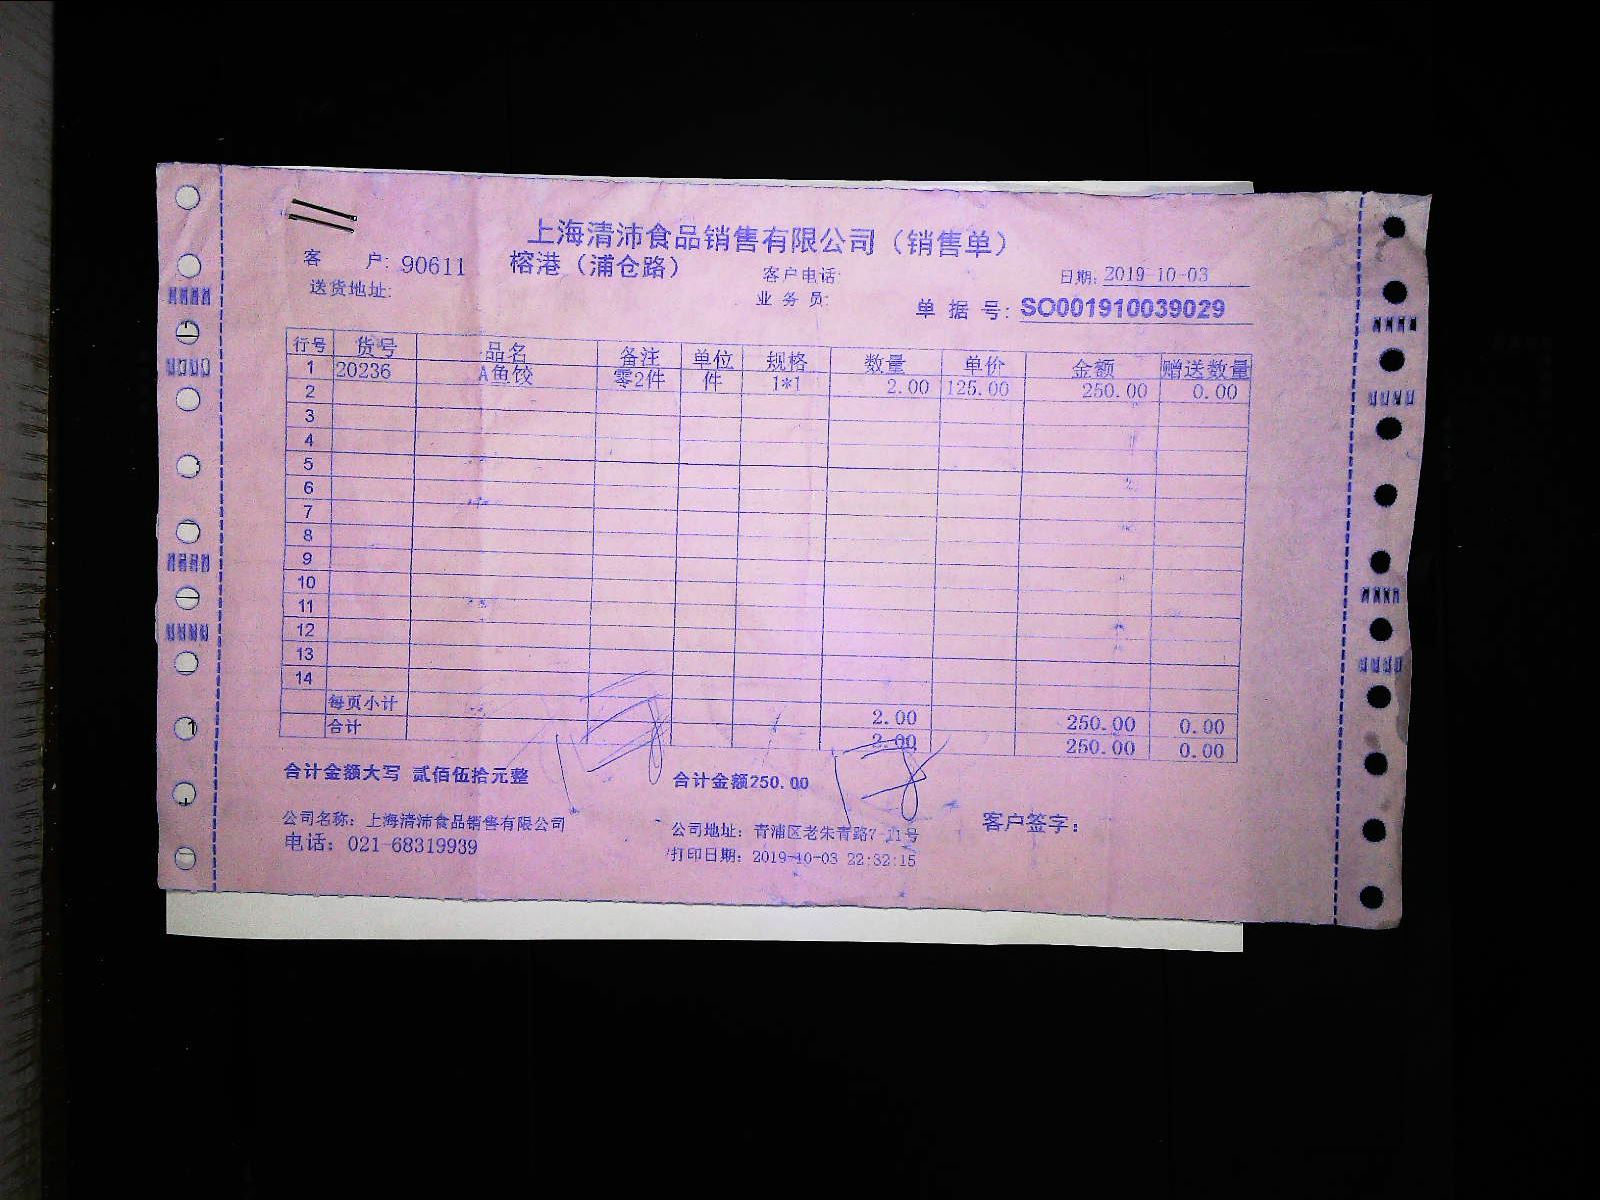 上海清沛食品销售有限公司（销售单）
客 户: 90611 榕港（浦仓路） 客户电话: 日期: 2019-10-03
送货地址: 业 务 员: 单 据 号: SO001910039029
行号 货号 品名 备注 单位 规格 数量 单价 金额 赠送数量
1 20236 A鱼饺 零2件 件 1*1 2.00 125.00 250.00 0.00
2
3
4
5
6
7
8
9
10
11
12
13
14
每页小计 2.00 250.00 0.00
合计 2.00 250.00 0.00
合计金额大写 贰佰伍拾元整 合计金额250.00
公司名称: 上海清沛食品销售有限公司 公司地址: 青浦区老朱青路7-11号 客户签字:
电话: 021-68319939 打印日期: 2019-10-03 22:32:15